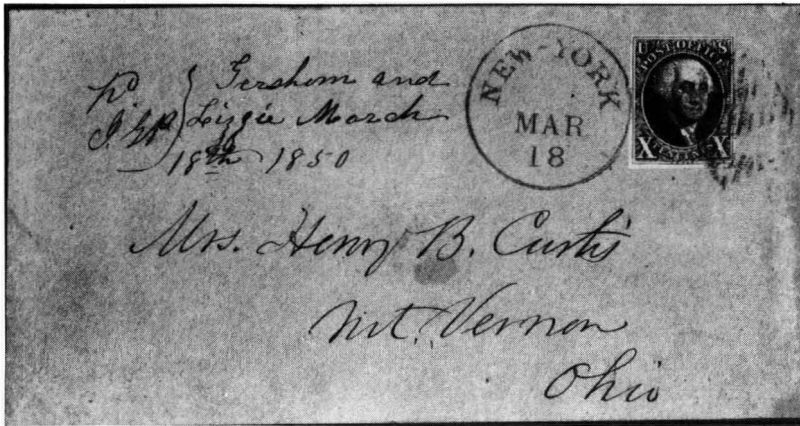 Gershom and
Lizzie March
18th 1850
NEW-YORK
MAR
18
U S
POST OFFICE
X X
Mrs. Henry B. Curtis
Mt. Vernon
Ohio